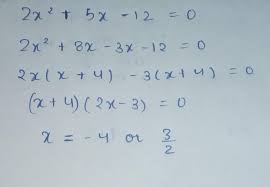 2x² + 5x - 12 = 0
2x² + 8x - 3x - 12 = 0
2x(x + 4) - 3(x + 4) = 0
(x + 4)(2x - 3) = 0
x = -4 or 3/2